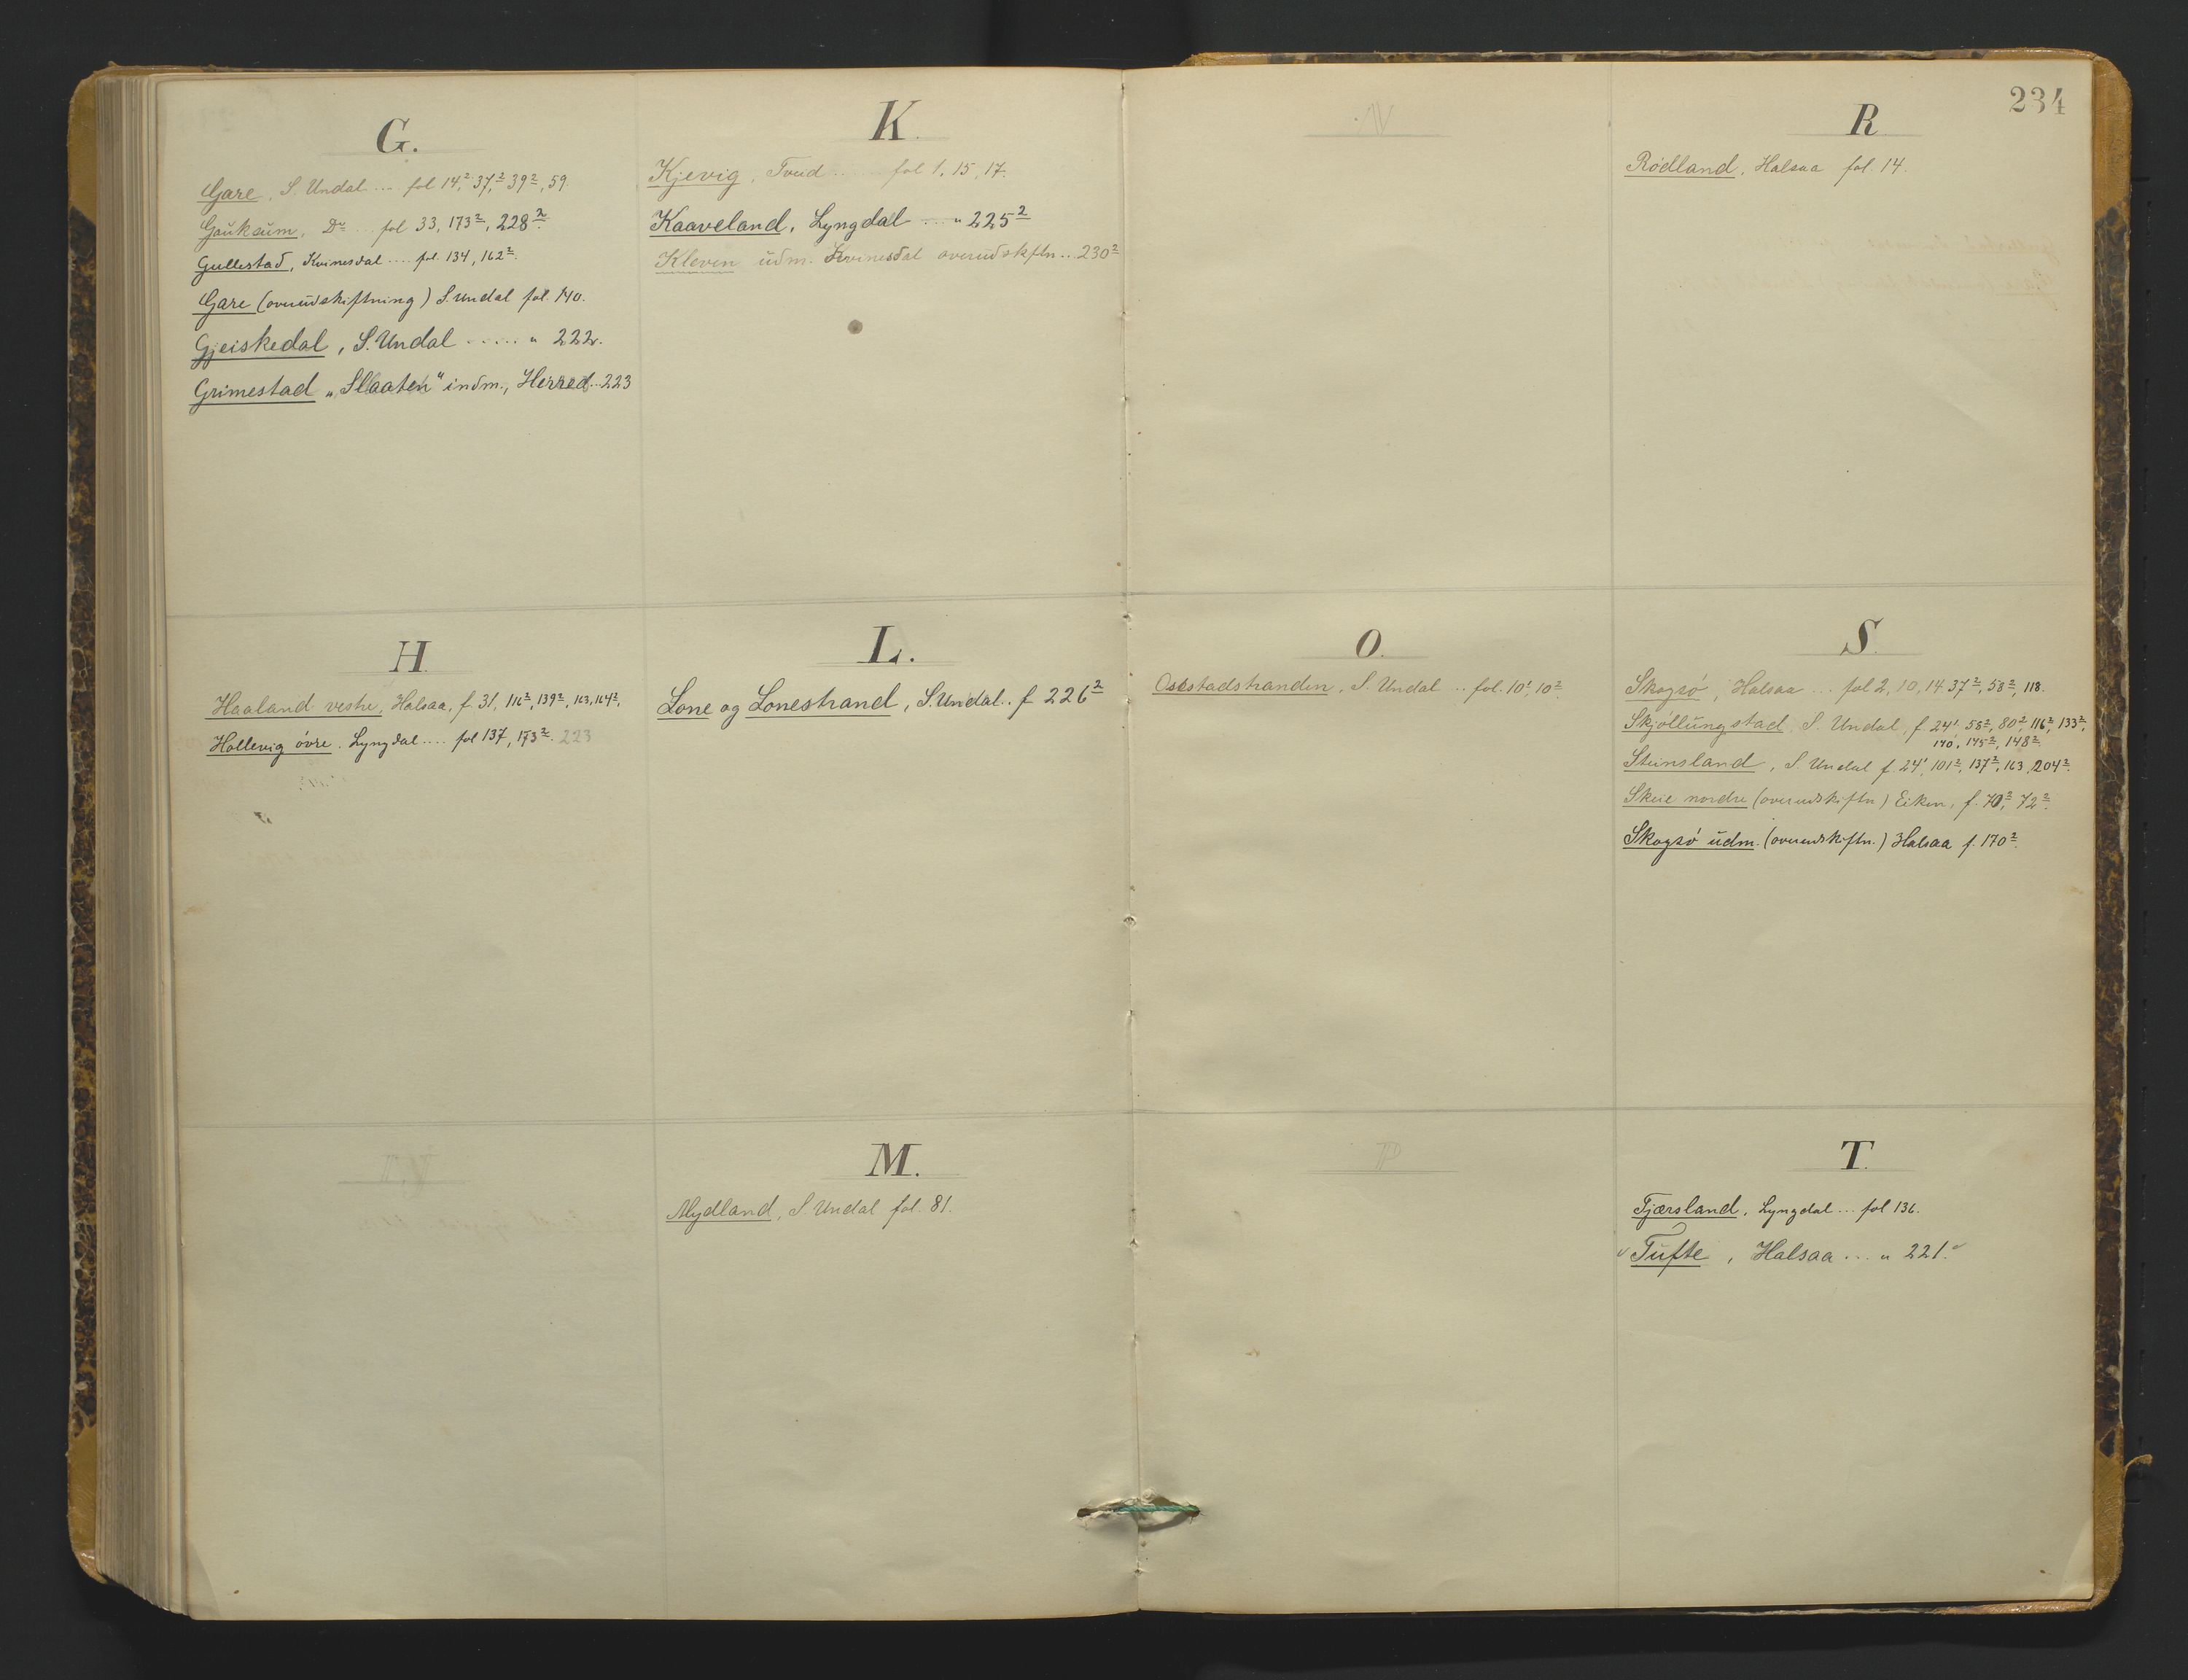 234
G.
Gare, S. Undal ... fol 14², 37², 39², 59
Gaukaum, Do .. fol 33, 173², 228².
Gullestad, Kvinesdal .... fol. 134, 162².
Gare (overudskiftning) S. Undal fol. 140.
Gjeiskedal, S. Undal ..... " 222.
Grimestad "Slaaten" indm., Herred..223
H.
Haaland vestre, Halsaa, f. 31, 116², 139², 163, 164²,
Hollevig övre. Lyngdal .... fol 137, 173². 223
K.
Kjevig, Tved ..... fol 1, 15, 17.
Kaaveland, Lyngdal .... " 225²
Kleven udm. Kvinesdal overudskftn.. 230²
L.
Lone og Lonestrand, S. Undal.. f 226²
M.
Mydland, S Undal fol. 81.
N.
O.
Osestadstranden, S. Undal .. fol. 10¹, 10².
P
R
Rödland, Halsaa fol. 14.
S.
Skogsö, Halsaa ... fol 2, 10, 14. 37², 58², 118.
Skjöllungstad, S. Undal, f. 24¹, 58², 80², 116², 133²,
140, 145², 148²
Steinsland, S. Undal f. 24¹, 101², 137², 163, 204².
Skeie nordre (overudskiftn) Eiken, f. 70², 72².
Skogsö udm. (overudskiftn.) Halsaa f. 170².
T.
Tjærsland, Lyngdal ... fol 136.
Tufte, Halsaa ... " 221.